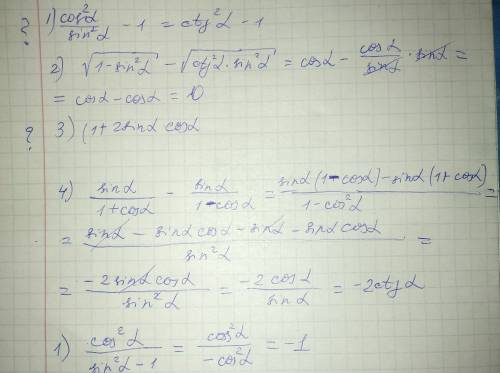 ? 1) cos²α / sin²α - 1 = ctg²α - 1
2) √(1-sin²α) - √(ctg²α · sin²α) = cosα - cosα / sinα · sinα =
= cosα - cosα = 0
? 3) (1+2sinα cosα
4) sinα / (1+cosα) - sinα / (1-cosα) = (sinα(1-cosα) - sinα(1+cosα)) / (1-cos²α) =
= (sinα - sinα cosα - sinα - sinα cosα) / sin²α =
= -2sinα cosα / sin²α = -2cosα / sinα = -2ctgα
1) cos²α / (sin²α - 1) = cos²α / -cos²α = -1